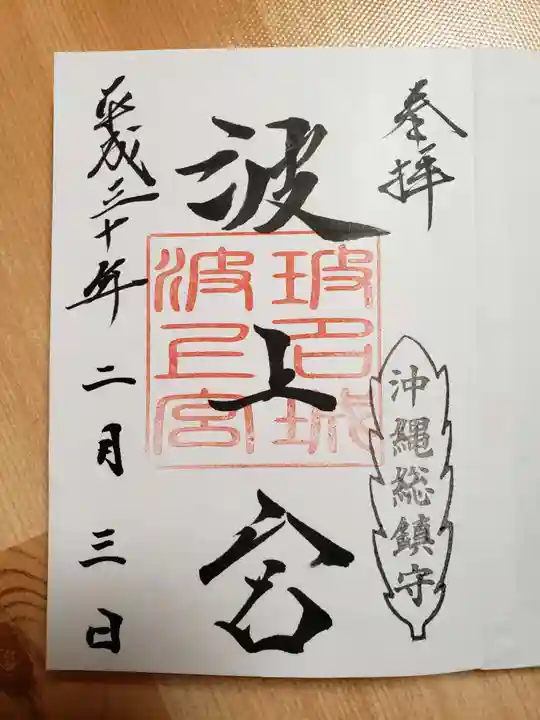 奉拝
沖縄総鎮守
波上宮
玻名城
波上宮
平成三十年二月三日